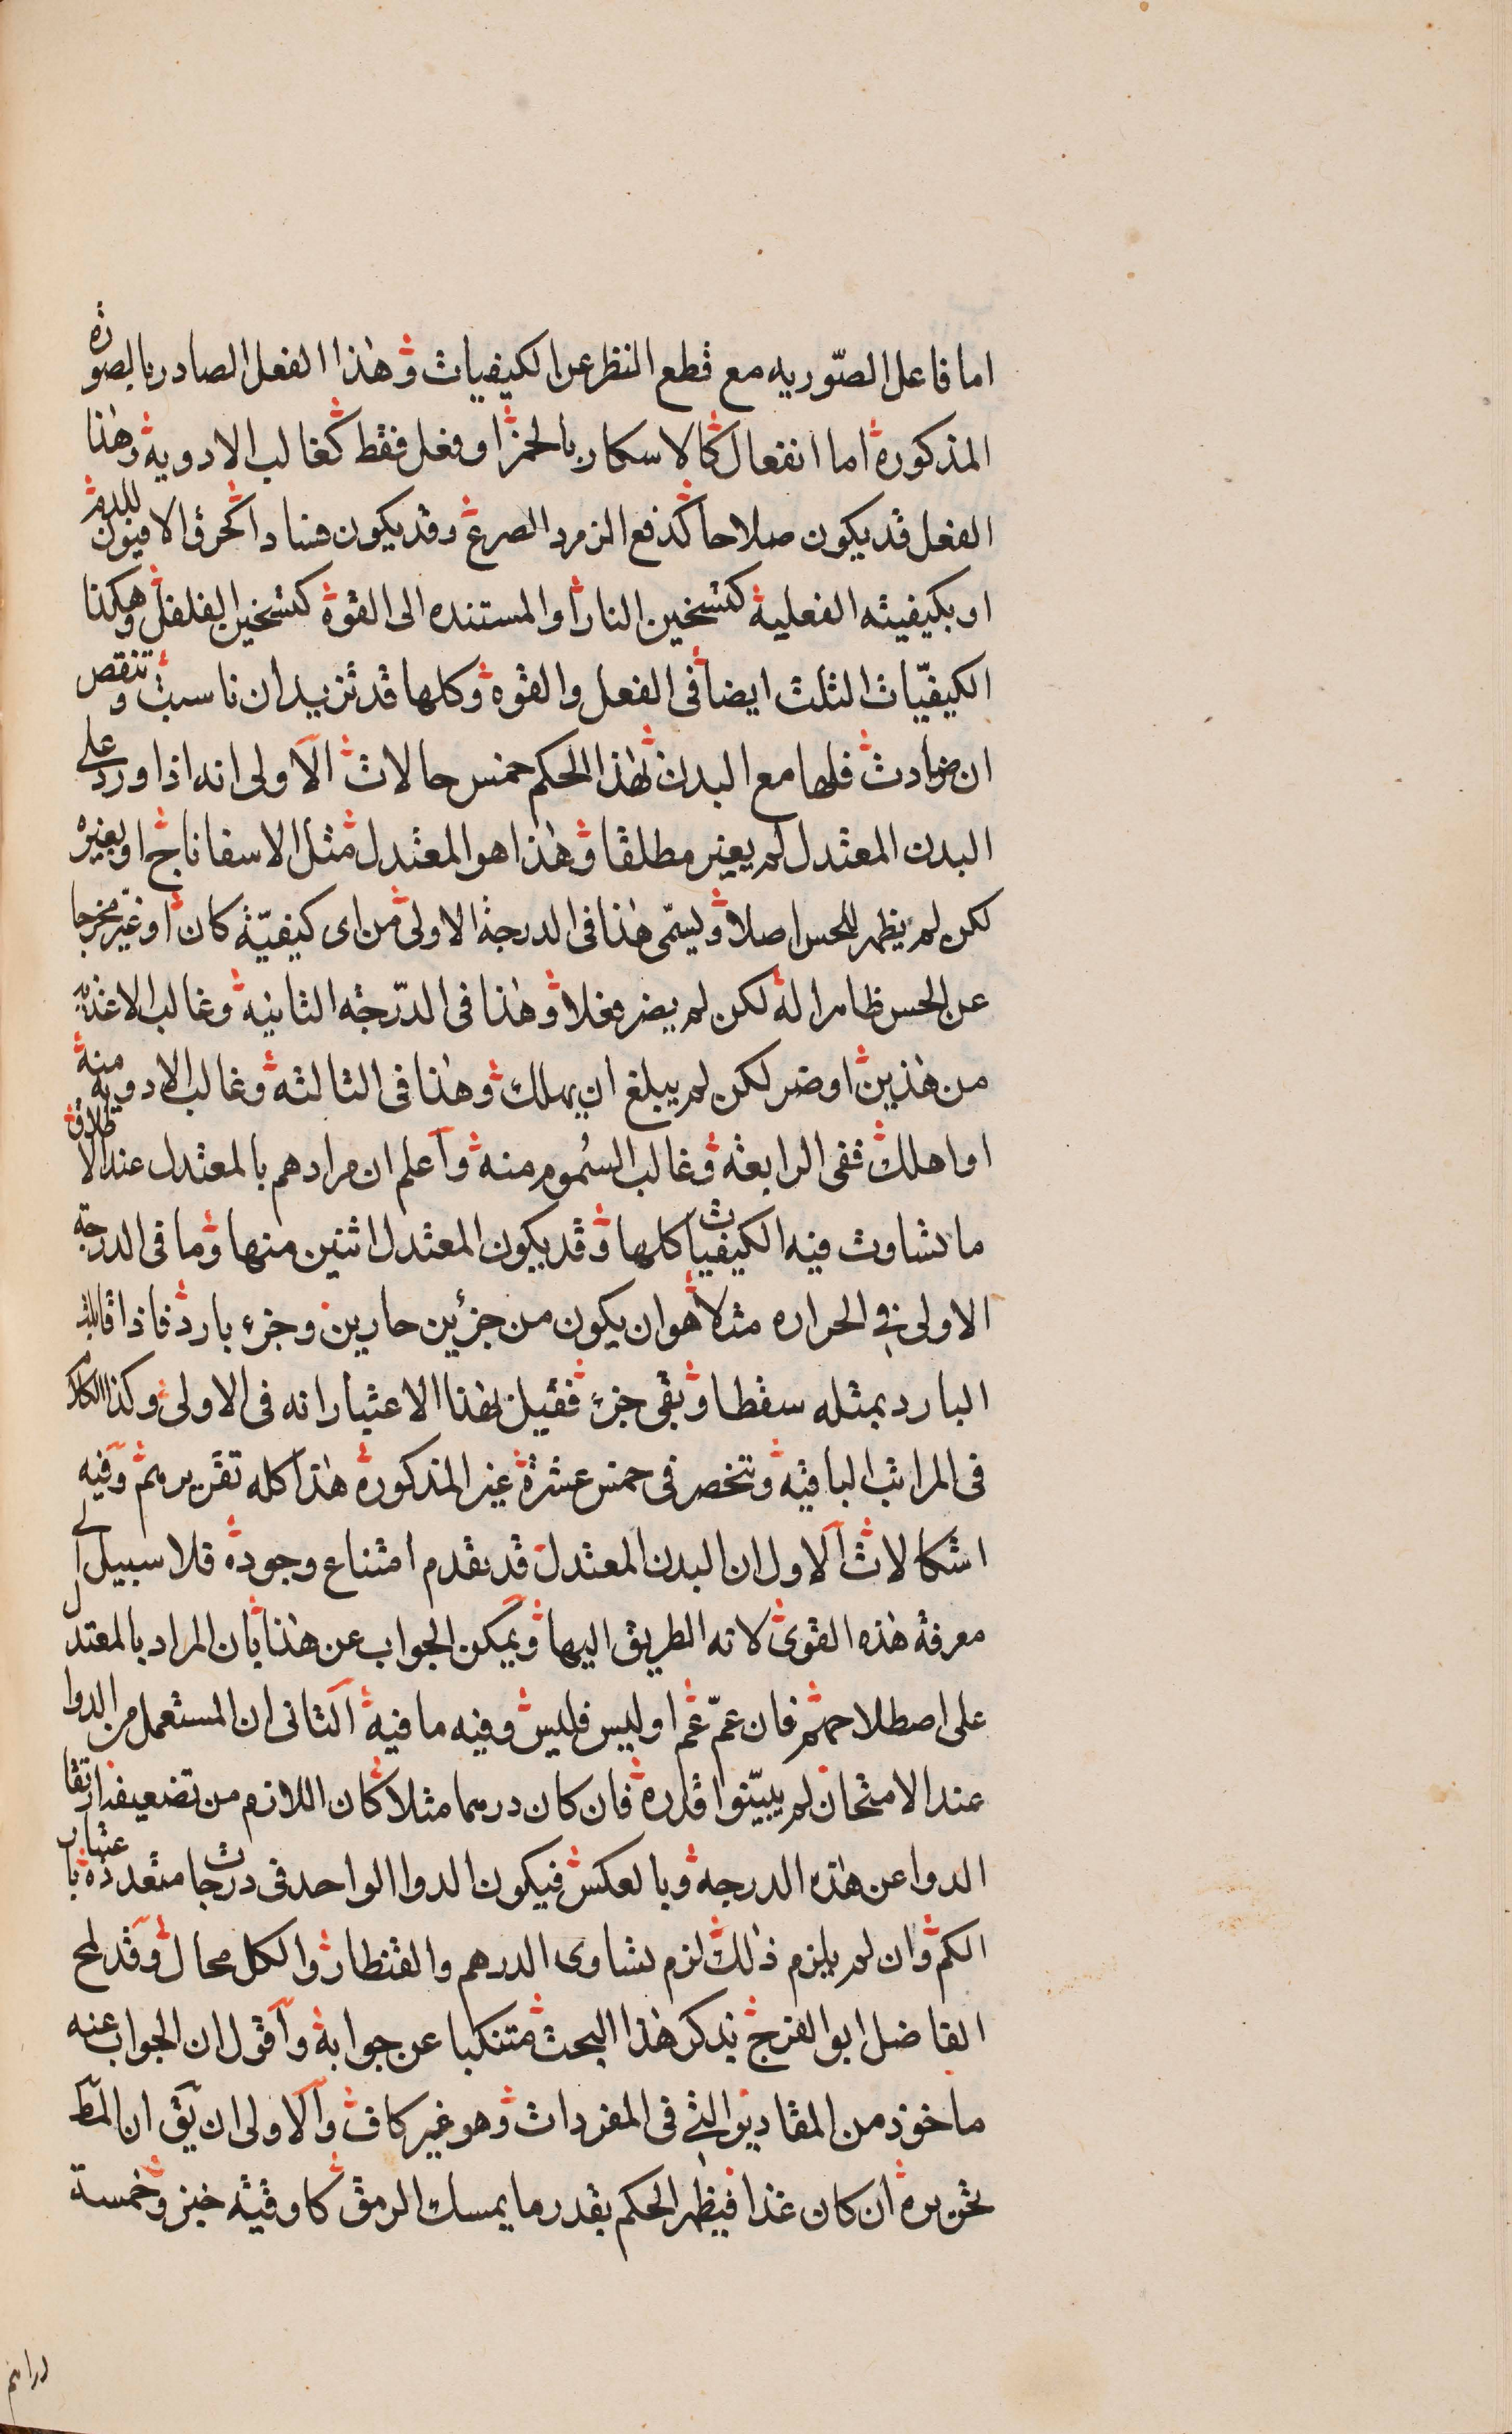 اما فاعل الصّوريه مع قطع النظر عن الكيفيات وهذا الفعل الصادر بالصورة
المذكورة اما انفعال كالاسكار بالخمر او فعل فقط كغالب الادوية وهذا
الفعل قد يكون صلاحا كدفع الزمرد الصرع وقد يكون فسادا كحرق الافيون للدم
او بكيفيته الفعلية كتسخين النار او المستنده الى القوة كتسخين الفلفل وهكذا
الكيفيّات الثلث ايضا في الفعل والقوه وكلها قد تزيد ان ناسبت وتنقص
ان ضادت فلها مع البدن لهذا الحكم خمس حالات الاولى انه اذا ورد على
البدن المعتدل لم يغير مطلقا وهذا هو المعتدل مثل الاسفاناخ او يغيره
لكن لم يظهر للحس اصلا ويسمّى هذا في الدرجة الاولى من اى كيفيّة كان او غير مخرجا
عن الحس ظاهرا له لكن لم يضر فعلا وهذا في الدّرجه الثانيه وغالب الاغذيه
من هذين او ضر لكن لم يبلغ ان يهلك وهذا في الثالثه وغالب الادويه منه
او اهلك ففي الرابعه وغالب السُموم منه واعلم ان مرادهم بالمعتدل عند الاطلاق
ما تساوت فيه الكيفيات كلها وقد يكون المعتدل اثنين منها وما في الدرجه
الاولى في الحراره مثلا هو ان يكون من جزئين حارين وجزء بارد فاذا قابلت
البارد بمثله سقطا وبقى جزء فقيل بهذا الاعتبار انه في الاولى وكذا الكلام
في المراتب الباقيه وتنحصر في خمس عشرة غير المذكورة هذا كله تقريرهم وفيه
اشكالات الاول ان البدن المعتدل قد تقدم امتناع وجوده فلا سبيل الى
معرفة هذه القوى لانه الطريق اليها ويمكن الجواب عن هذا بان المراد بالمعتدل
على اصطلاحهم فان عمّ عم او ليس فليس وفيه ما فيه الثانى ان المستعمل من الدوا
عند الامتحان لم يبيّنوا قدره فان كان درهما مثلا كان اللازم من تضعيفه ارتقا
الدوا عن هذه الدرجه وبالعكس فيكون الدوا الواحد في درجات متعدده باعتبار
الكم وان لم يلزم ذلك لزم تساوى الدرهم والقنطار والكل محال وقد لمح
الفاضل ابو الفرج بذكر هذا البحث متنكبا عن جوابه واقول ان الجواب عنه
ماخوذ من المقادير التى في المفردات وهو غير كاف والاولى ان يق ان المط
تحريره ان كان غذا فيظهر الحكم بقدر ما يمسك الرمق كاوقيه خبز وخمسة
دراهم